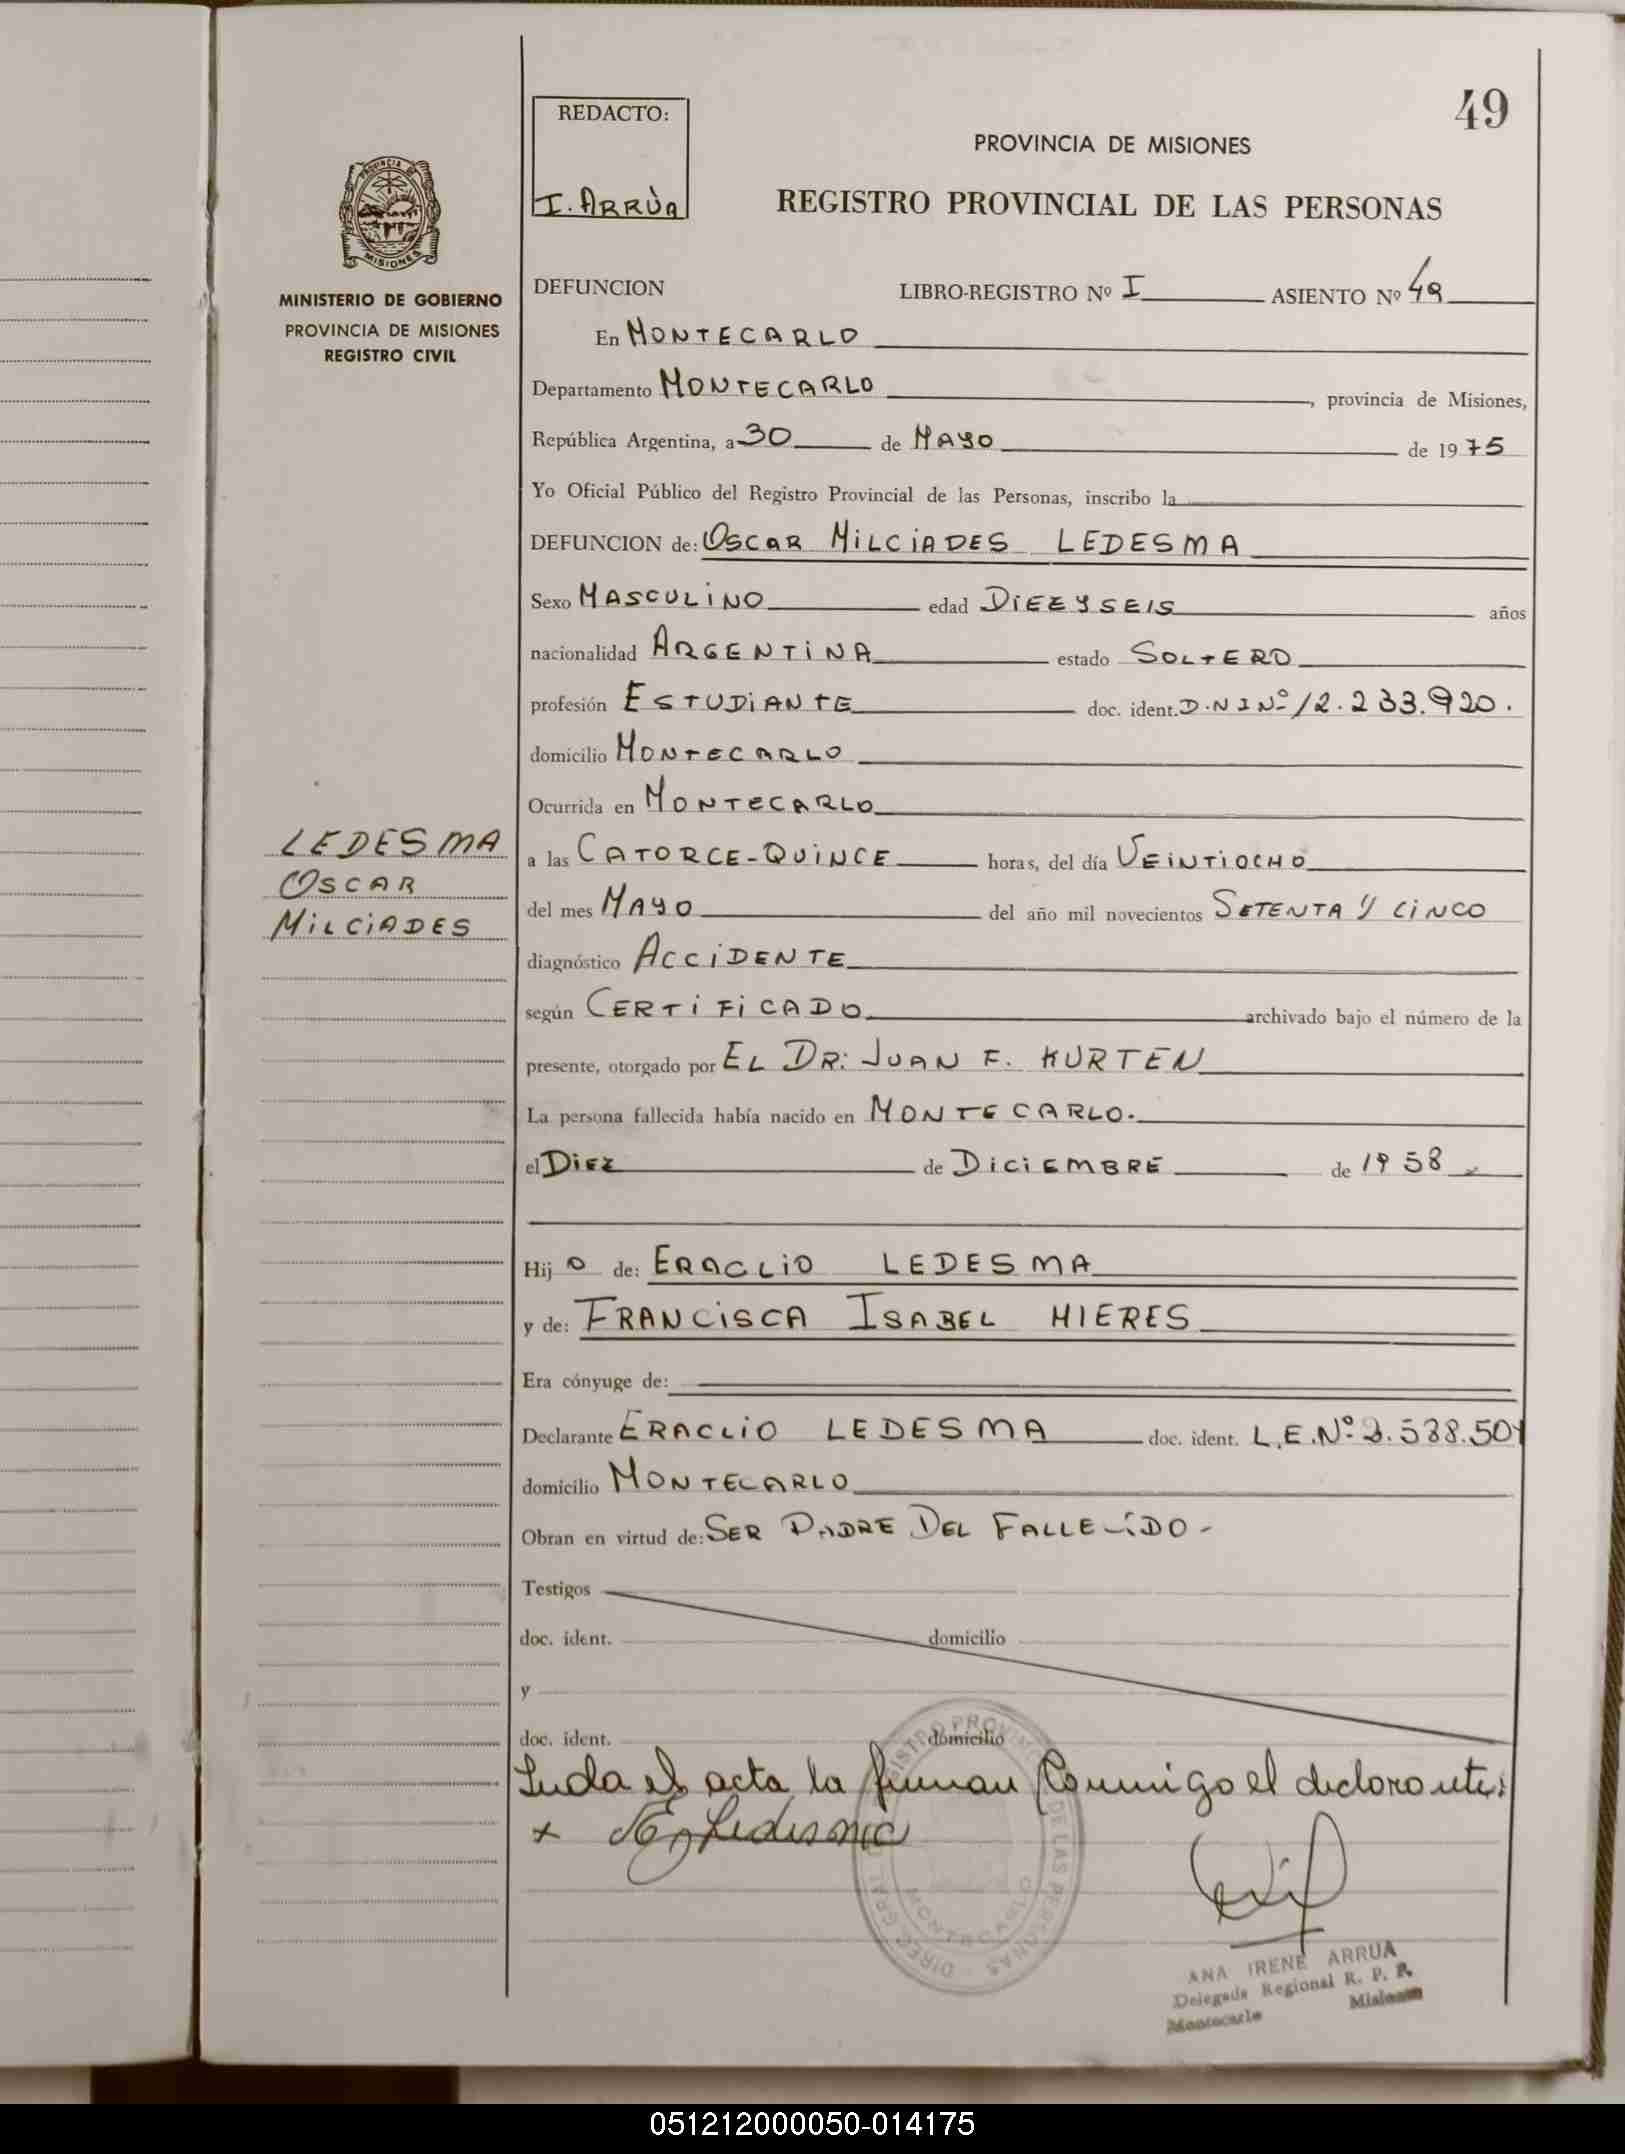 49
REDACTO:
I. ARRÙA
PROVINCIA DE MISIONES
REGISTRO PROVINCIAL DE LAS PERSONAS
PROVINCIA DE
MISIONES
MINISTERIO DE GOBIERNO
PROVINCIA DE MISIONES
REGISTRO CIVIL
DEFUNCION LIBRO-REGISTRO Nº I ASIENTO Nº 49
En MONTECARLO
Departamento MONTECARLO, provincia de Misiones,
República Argentina, a 30 de MAYO de 1975
Yo Oficial Público del Registro Provincial de las Personas, inscribo la
DEFUNCION de: OSCAR MILCIADES LEDESMA
Sexo MASCULINO edad DIEZ Y SEIS años
nacionalidad ARGENTINA estado SOLTERO
profesión ESTUDIANTE doc. ident. D.N.I Nº 12.233.920.
domicilio MONTECARLO
Ocurrida en MONTECARLO
LEDESMA
OSCAR
MILCIADES
a las CATORCE-QUINCE horas, del día VEINTIOCHO
del mes MAYO del año mil novecientos SETENTA Y CINCO
diagnóstico ACCIDENTE
según CERTIFICADO archivado bajo el número de la
presente, otorgado por EL DR: JUAN F. KURTEN
La persona fallecida había nacido en MONTECARLO.
el DIEZ de DICIEMBRE de 1958
Hijo de: ERACLIO LEDESMA
y de: FRANCISCA ISABEL MIERES
Era cónyuge de:
Declarante ERACLIO LEDESMA doc. ident. L.E.Nº
domicilio MONTECARLO
Obran en virtud de: SER PADRE DEL FALLECIDO-
Testigos
doc. ident. domicilio
y
doc. ident. domicilio
Leida el acta la firman Conmigo el declarante:
x E Ledesma
DIREC. GRAL. REGISTRO PROVINCIAL DE LAS PERSONAS
MONTECARLO
ANA IRENE ARRUA
Delegada Regional R. P. P.
Montecarlo Misiones
051212000050-014175